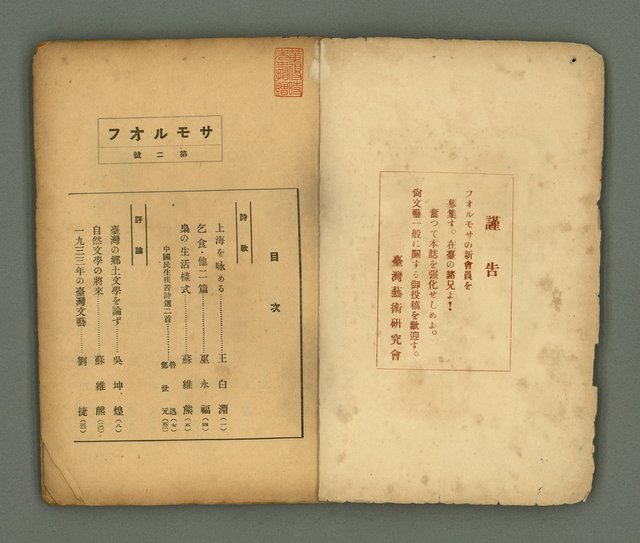 謹告
フオルモサの新會員を
募集す。在臺の諸兄よ!
奮つて本誌を强化せしめよ。
尙文藝一般に關する御投稿を歡迎す。
臺灣藝術硏究會
フオルモサ
第二號
目次
詩歌
上海を咏める……王白淵(一)
乞食他二篇……巫永福(四)
梟の生活樣式……蘇維熊(五)
中國民生疾苦詩選二首……魯迅(七)
鄭世元
評論
臺灣の鄕土文學を論ず……吳坤煌(八)
自然文學の將來……蘇維熊
一九三三年の臺灣文藝……劉捷